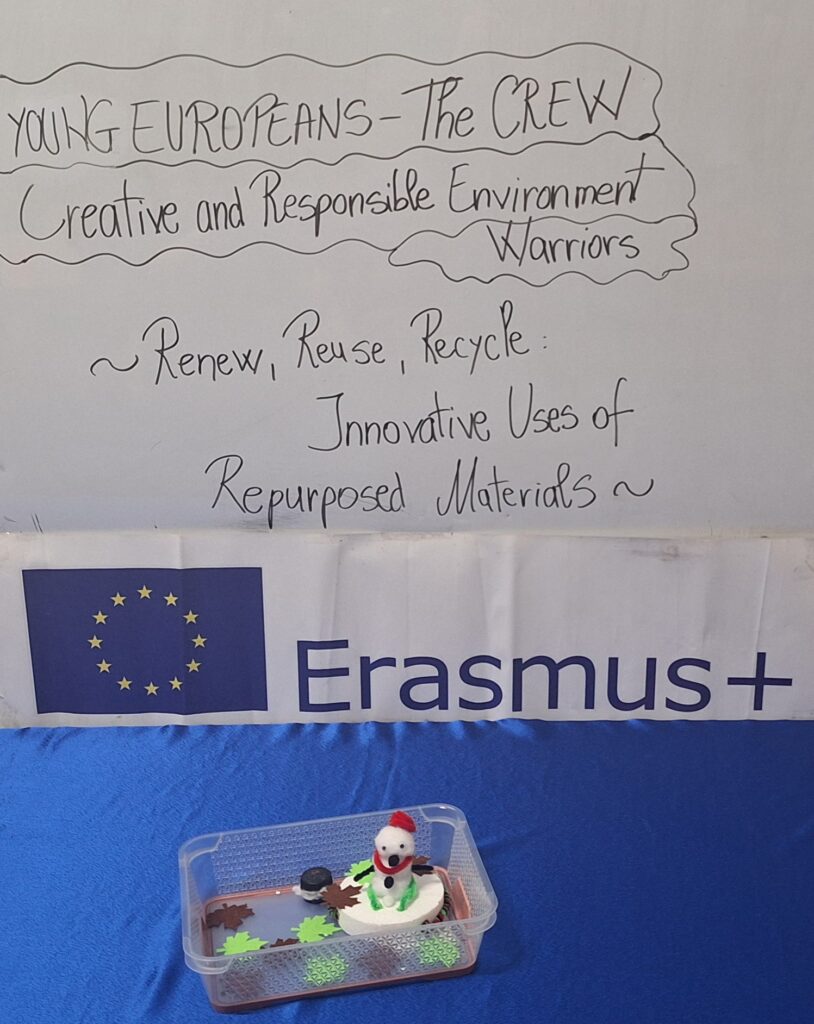 YOUNG EUROPEANS - The CREW
Creative and Responsible Environment
Warriors
~ Renew, Reuse, Recycle:
Innovative Uses of
Repurposed Materials ~
Erasmus+